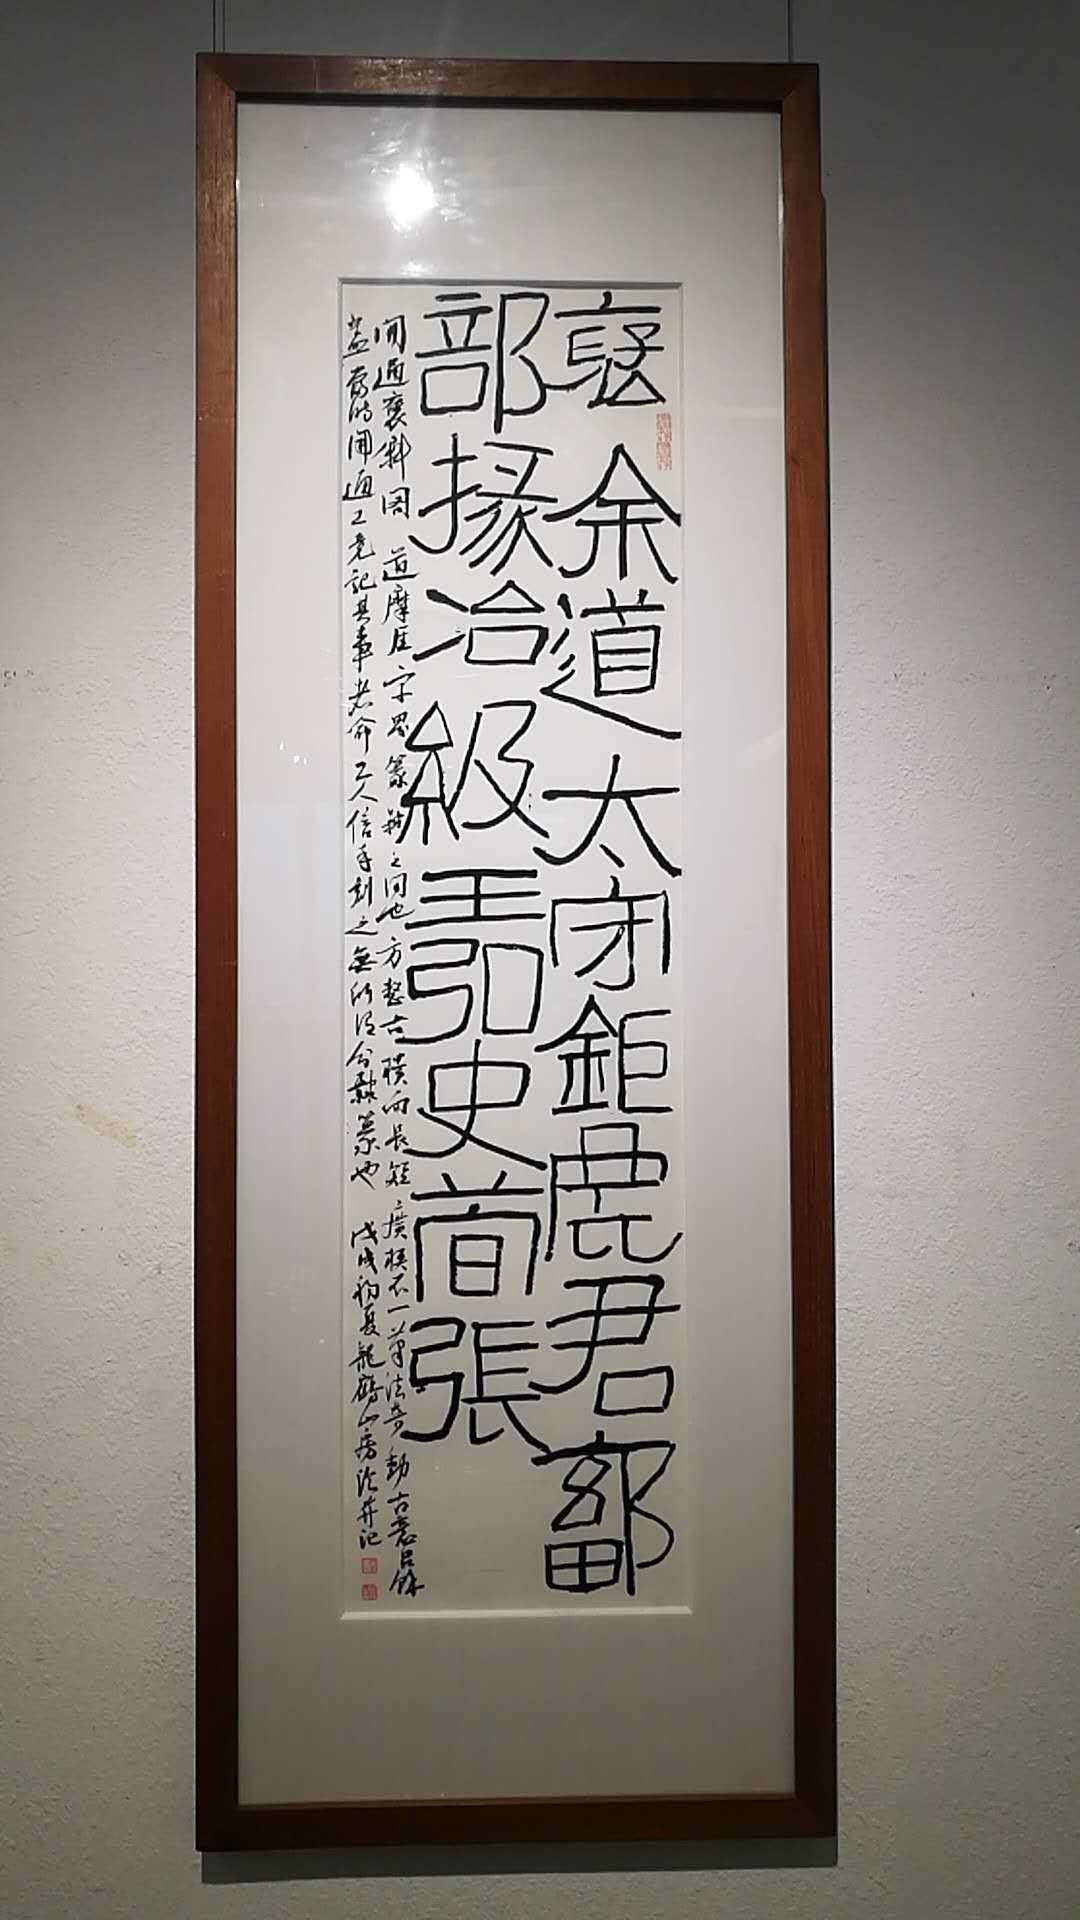 襃余道太守鉅鹿君鄐
部掾治級王弘史荀張
開通襃斜閣道摩厓字思篆隸之間也方整古橫而長短廣橫不一筆法奇勁古意有餘
蓋當時開通工竟記其事者命工人信手刻之無所謂分隸篆也 戊戌初夏龍鶴山房 并記